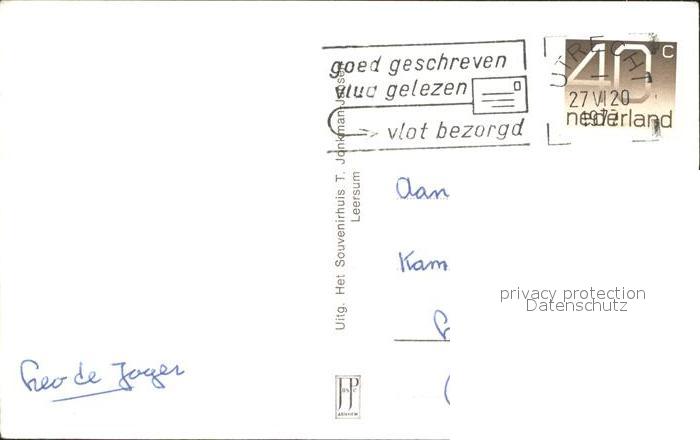 goed geschreven
vlug gelezen
vlot bezorgd
UTRECHT
40 c
27 VI 20
nederland
Uitg. Het Souvenirhuis T. Jonkman
Leersum
Aan
Kam
privacy protection
Datenschutz
de Jager
ARNHEM